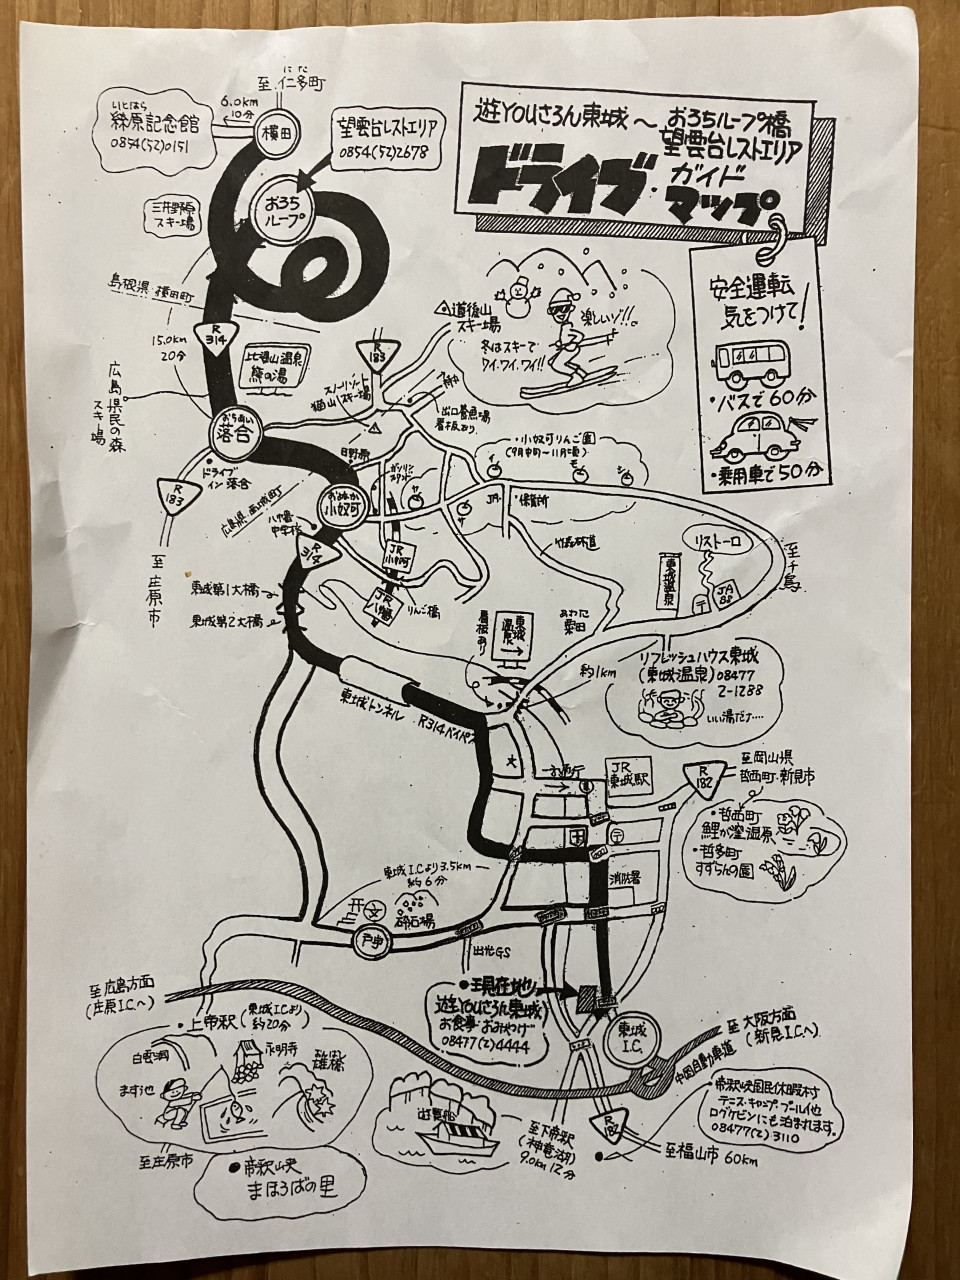 至 仁多町
にた
6.0km
10分
いとはら
絲原記念館
0854(52)0151
横田
望雲台レストエリア
0854(52)2678
遊YOUさろん東城～おろちループ橋
望雲台レストエリア
ドライブ・ガイド
マップ
おろち
ループ
三井野原
スキー場
島根県・横田町
安全運転
気をつけて!
・バスで60分
・乗用車で50分
道後山
スキー場
楽しいゾ!!。
冬はスキーで
ワイ、ワイ、ワイ!!
R
314
15.0km
20分
比婆山温泉
熊の湯
R
183
広島県民の森
スキー場
スノーリゾート
猫山スキー場
出口養魚場
看板あり
おちあい
落合
・小奴可りんご園
(9月中旬〜11月頃)
日野原
ガソリン
スタンド
イ
モ
シ
ヤ
サ
ドライブ
イン 落合
R
183
至庄原市
広島県・西城町
おぬか
小奴可
JA
・保育所
八幡
中学校
R
314
JR
小奴可
JR
八幡
りんご橋
竹森林道
リストーロ
至千鳥
東城温泉
〒
JA
SS
東城第1大橋
東城第2大橋
看板あり
東城
温泉
→
あわた
粟田
約1km
リフレッシュハウス東城
(東城温泉)08477
2-1288
いい湯だナ‥‥
東城トンネル
R314バイパス
大
JR
東城駅
R
182
至岡山県
哲西町・新見市
・哲西町
鯉が窪湿原
・哲多町
すずらんの園
〒
消防署
東城I.Cより3.5km
約6分
文
砕石場
戸宇
出光GS
●現在地
遊YOUさろん東城
お食事・おみやげ
08477(2)4444
東城
I.C.
至広島方面
(庄原I.C.へ)
至 大阪方面
(新見I.C.へ)
中国自動車道
・上帝釈(東城I.Cより
約20分)
白雲洞
永明寺
雄橋
ます池
至庄原市
●帝釈峡
まほろばの里
遊覧船
至下帝釈
(神竜湖)
9.0km 12分
R
182
至福山市 60km
・帝釈峡国民休暇村
テニス・キャンプ・プール他
ログケビンにも泊まれます。
08477(2)3110